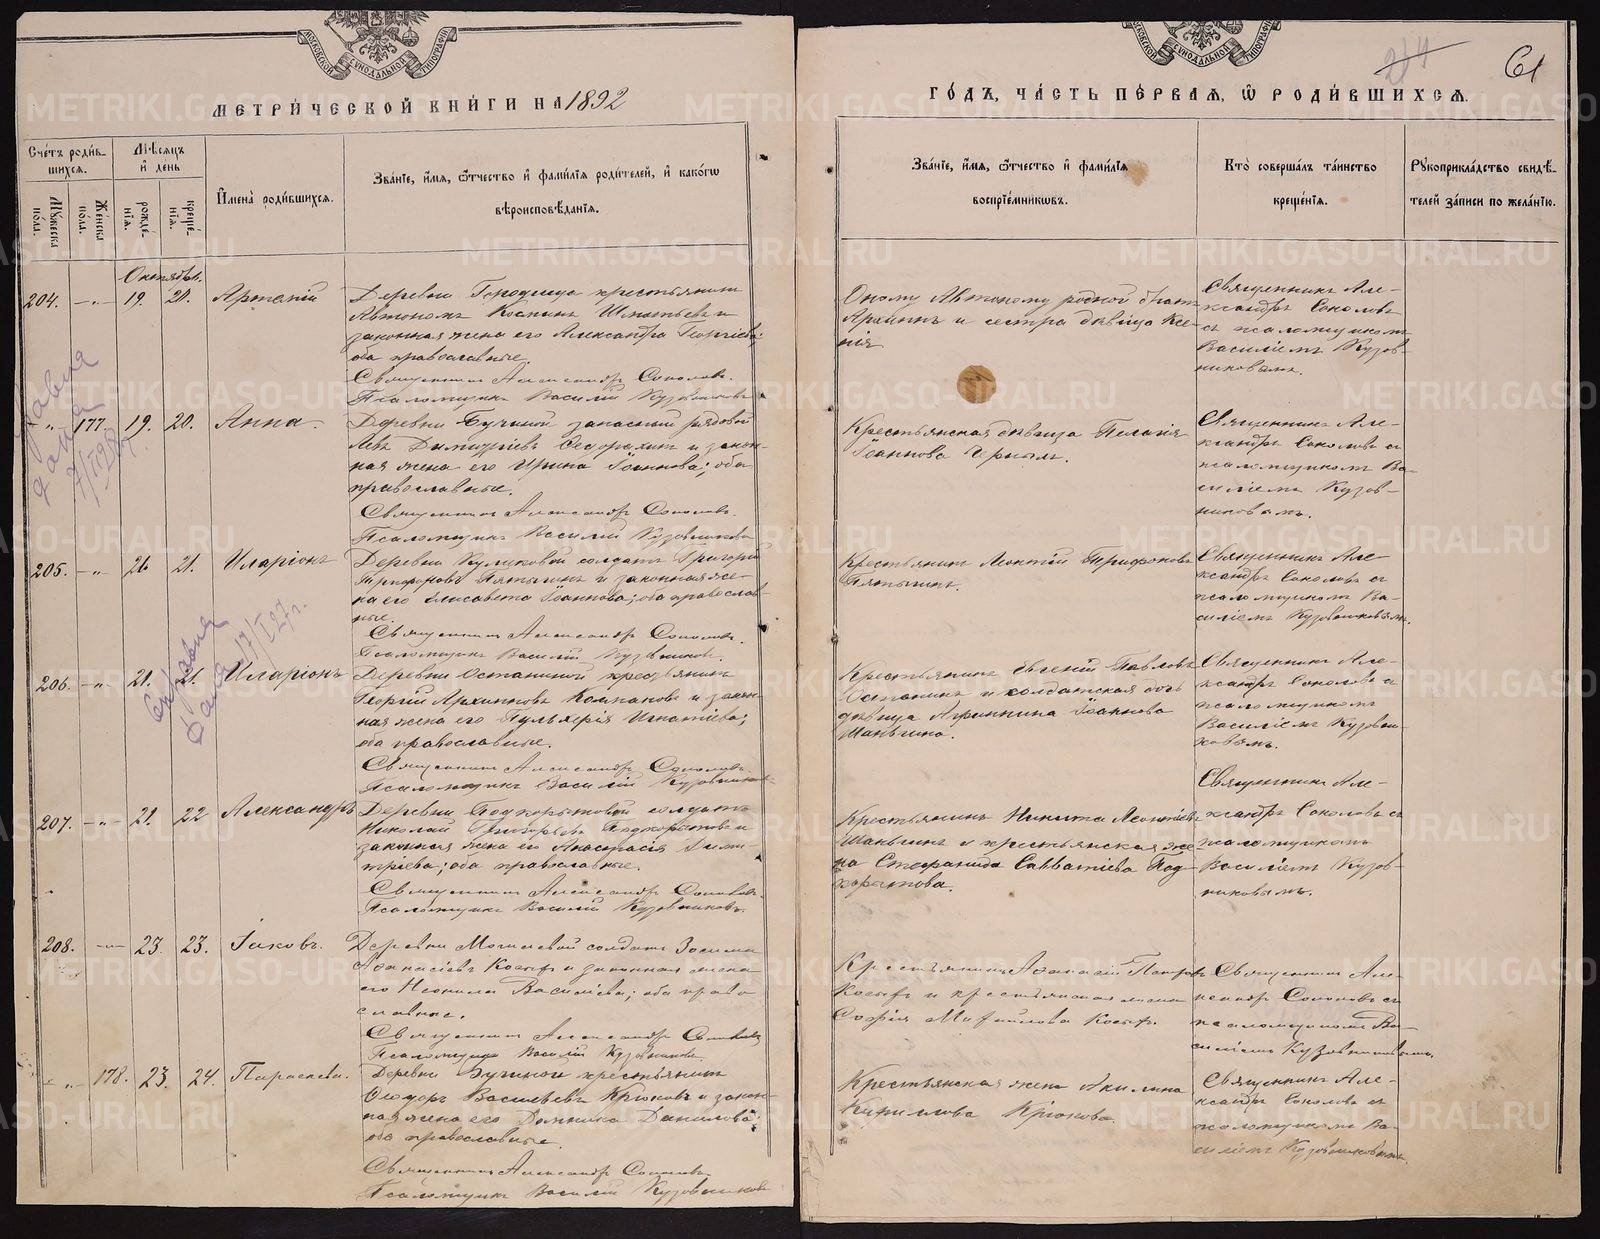 МОСКОВСКОЙ СѴНОДАЛЬНОЙ ТИПОГРАФІИ
МЕТРИ́ЧЕСКОЙ КНИ́ГИ НА 1892
Сче́тъ роди́в-
шихсѧ.
Мѣ́сѧцъ
и҆ де́нь
Мꙋ́жеска
по́ла.
Же́нска
по́ла.
рожде́-
нїѧ.
креще́-
нїѧ.
И҆мена̀ роди́вшихсѧ.
Зва́нїе, и҆́мѧ, ѻ҆́тчество и҆ фами́лїѧ роди́телей, и҆ како́гѡ
вѣроисповѣ́данїѧ.
Октябрь.
204. -„- 19. 20. Артемій
Деревни Городища крестьянинъ
Автономъ Игнатьевъ и
законная жена его Александра Георгіева;
оба православные.
Священникъ Александръ Соколовъ.
Псаломщикъ Василій Кузовниковъ
„ 177 19. 20. Анна.
Деревни Бучиной запасный рядовой
Левъ Димитріевъ и закон-
ная жена его Ирина Іоаннова; оба
православные.
Священникъ Александръ Соколовъ.
Псаломщикъ Василій Кузовниковъ
205. -„- 21. Иларіонъ
Деревни Куликовой солдатъ Григорій
Трифоновъ Пятыгинъ и законная же-
на его Елисавета Іоаннова; оба православ-
ные.
Священникъ Александръ Соколовъ.
Псаломщикъ Василій Кузовниковъ.
206. -„- 21. 21. Иларіонъ
Деревни Останиной крестьянинъ
Георгій Архиповъ Колпаковъ и закон-
ная жена его Пульхерія Игнатіева;
оба православные.
Священникъ Александръ Соколовъ
Псаломщикъ Василій Кузовниковъ
207. -„- 21. 22 Александръ
Деревни Подкорытовой солдатъ
Николай Григорьевъ Подкорытовъ и
законная жена его Анастасія Дими-
тріева; оба православные.
Священникъ Александръ Соколовъ.
Псаломщикъ Василій Кузовниковъ.
208. -„- 23 23. Іаковъ.
Деревни Мочищевой солдатъ Зосима
Аѳанасіевъ и законная жена
его Неонила Василіева; оба право
славные.
Священникъ Александръ Соколовъ
Псаломщикъ Василій Кузовниковъ
-„ 178. 23. 24. Параскева.
Деревни Бучиной крестьянинъ
Ѳеодоръ Васильевъ Крюковъ и закон-
ная жена его Домника Данилова;
оба православные.
Священникъ Александръ Соколовъ
Псаломщикъ Василій Кузовниковъ
Справка
дана
Справка
дана 17/I 27 г.
МОСКОВСКОЙ СѴНОДАЛЬНОЙ ТИПОГРАФІИ
61
ГО́ДЪ, ЧА́СТЬ ПЕ́РВАѦ, Ѽ РОДИ́ВШИХСѦ.
Зва́нїе, и҆́мѧ, ѻ҆́тчество и҆ фами́лїѧ
воспрїе́мникѡвъ.
Кто̀ соверша́лъ та́инство
креще́нїѧ.
Рꙋкоприкла́дство свидѣ́-
телей за́писи по жела́нїю.
Оному Автоному родной братъ
Архипъ и сестра дѣвица Ксе-
нія
Священникъ Але-
ксандръ Соколовъ
съ псаломщикомъ
Василіемъ Кузов-
никовымъ.
Крестьянская дѣвица Пелагія
Іоаннова Черныхъ.
Священникъ Але-
ксандръ Соколовъ съ
псаломщикомъ Ва-
силіемъ Кузов-
никовымъ.
Крестьянинъ Леонтій Трифоновъ
Пятыгинъ.
Священникъ Але-
ксандръ Соколовъ съ
псаломщикомъ Ва-
силіемъ Кузовниковымъ.
Крестьянинъ Евгеній Павловъ
Останинъ и солдатская дочь
дѣвица Агриппина Іоаннова
Шаньгина.
Священникъ Але-
ксандръ Соколовъ съ
псаломщикомъ
Василіемъ Кузовни-
ковымъ.
Крестьянинъ Никита Леонтіевъ
Шаньгинъ и крестьянская же-
на Стефанида Савватіева Под-
корытова.
Священникъ Але-
ксандръ Соколовъ съ
псаломщикомъ
Василіемъ Кузов-
никовымъ.
Крестьянинъ Аѳанасій Петровъ
и крестьянская жена
Софія Михайлова
Священникъ Але-
ксандръ Соколовъ съ
псаломщикомъ Ва-
силіемъ Кузовниковымъ.
Крестьянская жена Акилина
Кириллова Крюкова.
Священникъ Але-
ксандръ Соколовъ съ
псаломщикомъ Ва-
силіемъ Кузовниковымъ.
METRIKI.GASO-URAL.RU